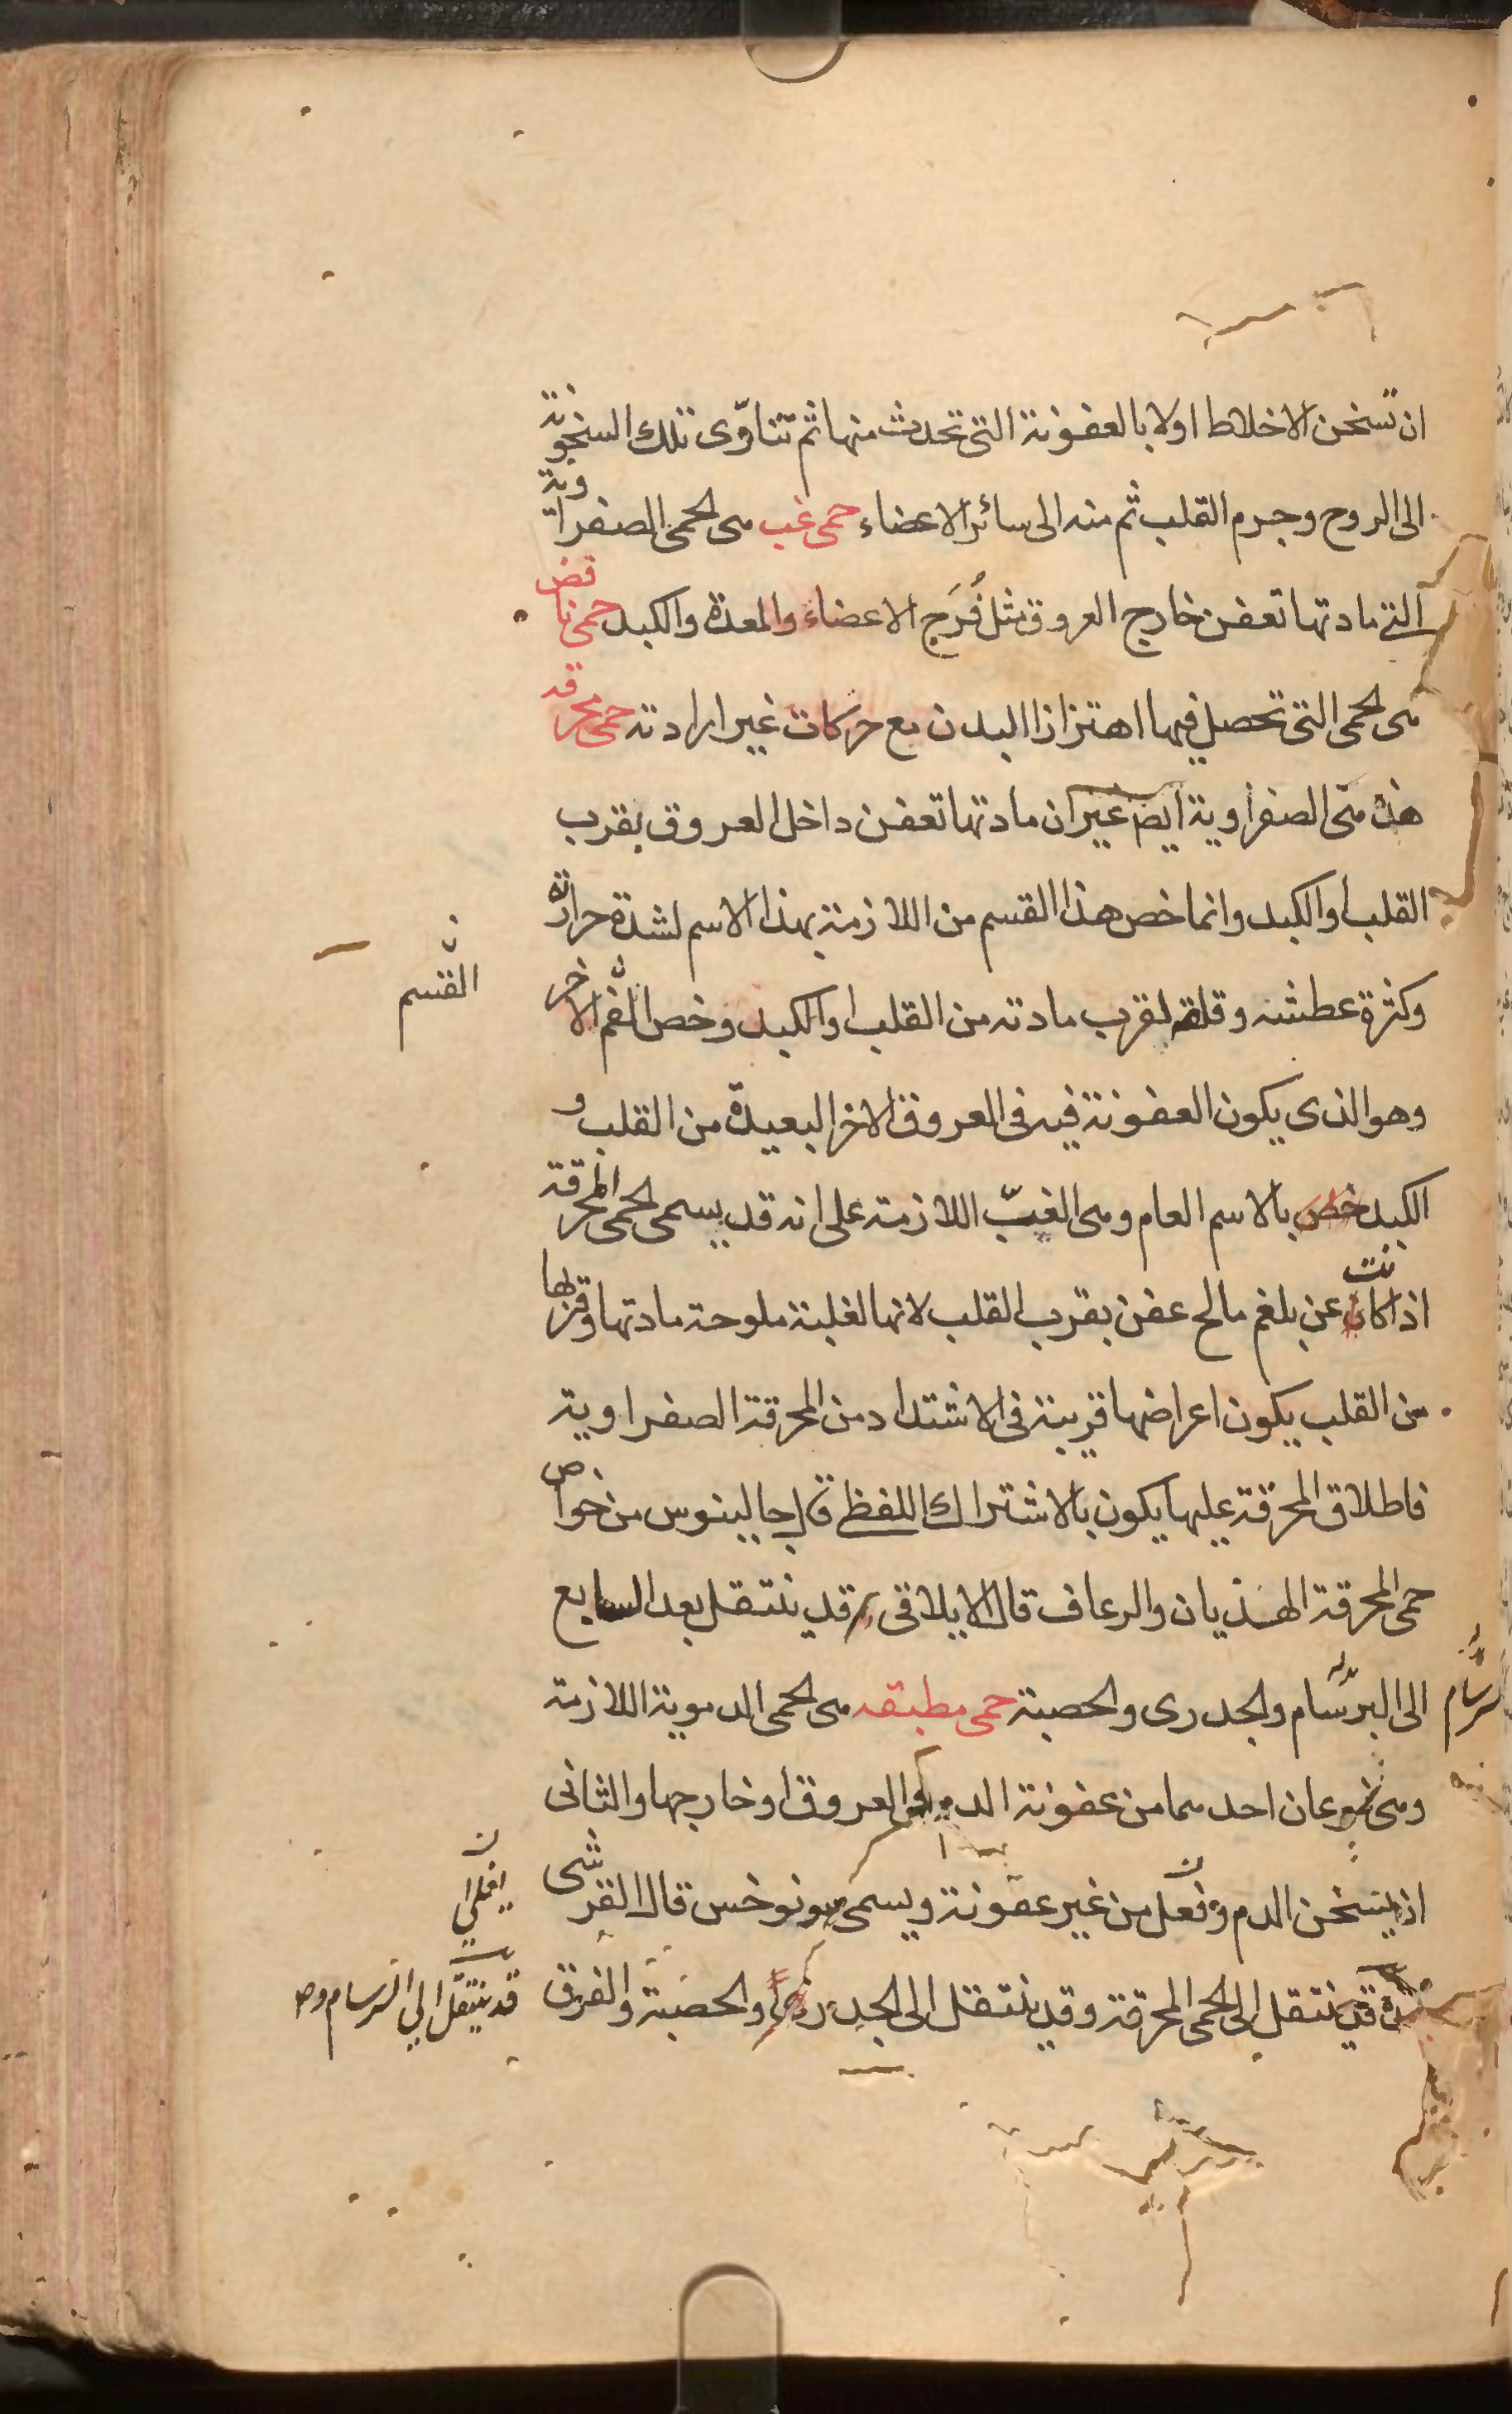 ان تسخن الاخلاط اولا بالعفونة التى تحدث منها ثم تتاوّى تلك السخونة
الى الروح وجرم القلب ثم منه الى سائر الاعضاء حمى غب هى الحمى الصفراوية
التى مادتها تعفن خارج العروق مثل فُرَج الاعضاء والمعدة والكبد حمى نافض
هى الحمى التى تحصل فيها اهتزازا البدن مع حركات غير ارادته حمى محرقه
هذه هى الصفراوية ايضً غير ان مادتها تعفن داخل العروق بقرب
القلب او الكبد وانما خص هذا القسم من اللازمة بهذا الاسم لشدة حرارته
وكثرة عطشه وقلقه لقرب مادته من القلب او الكبد وخص الاخر
القسم
وهو الذى يكون العفونة فيه فى العروق الاخر البعيدة من القلب و
الكبد خص بالاسم العام وهى الغبّ اللازمة على انه قد يسمى الحمى المحرقة
اذا كانت عن بلغم مالح عفن بقرب القلب لانها لغلبة ملوحة مادتها وقربها
من القلب يكون اعراضها قريبة فى الاشتداد من المحرقة الصفراوية
فاطلاق المحرقة عليها يكون بالاشتراك اللفظى قال جالينوس من خواص
حمى المحرقة الهذيان والرعاف قال الايلاقى قد ينتقل بعد السابع
الى البرسام والجدرى والحصبة حمى مطبقه هى الحمى الدموية اللازمة
وهى نوعان احدهما من عفونة الدم فى العروق او خارجها والثانى
ان يسخن الدم من غير عفونة ويسمى سونوخس قال القرشى
قد ينتقل الى الحمى المحرقة وقد ينتقل الى الجدرى والحصبة والفرق
قد ينتقل الى السرسام